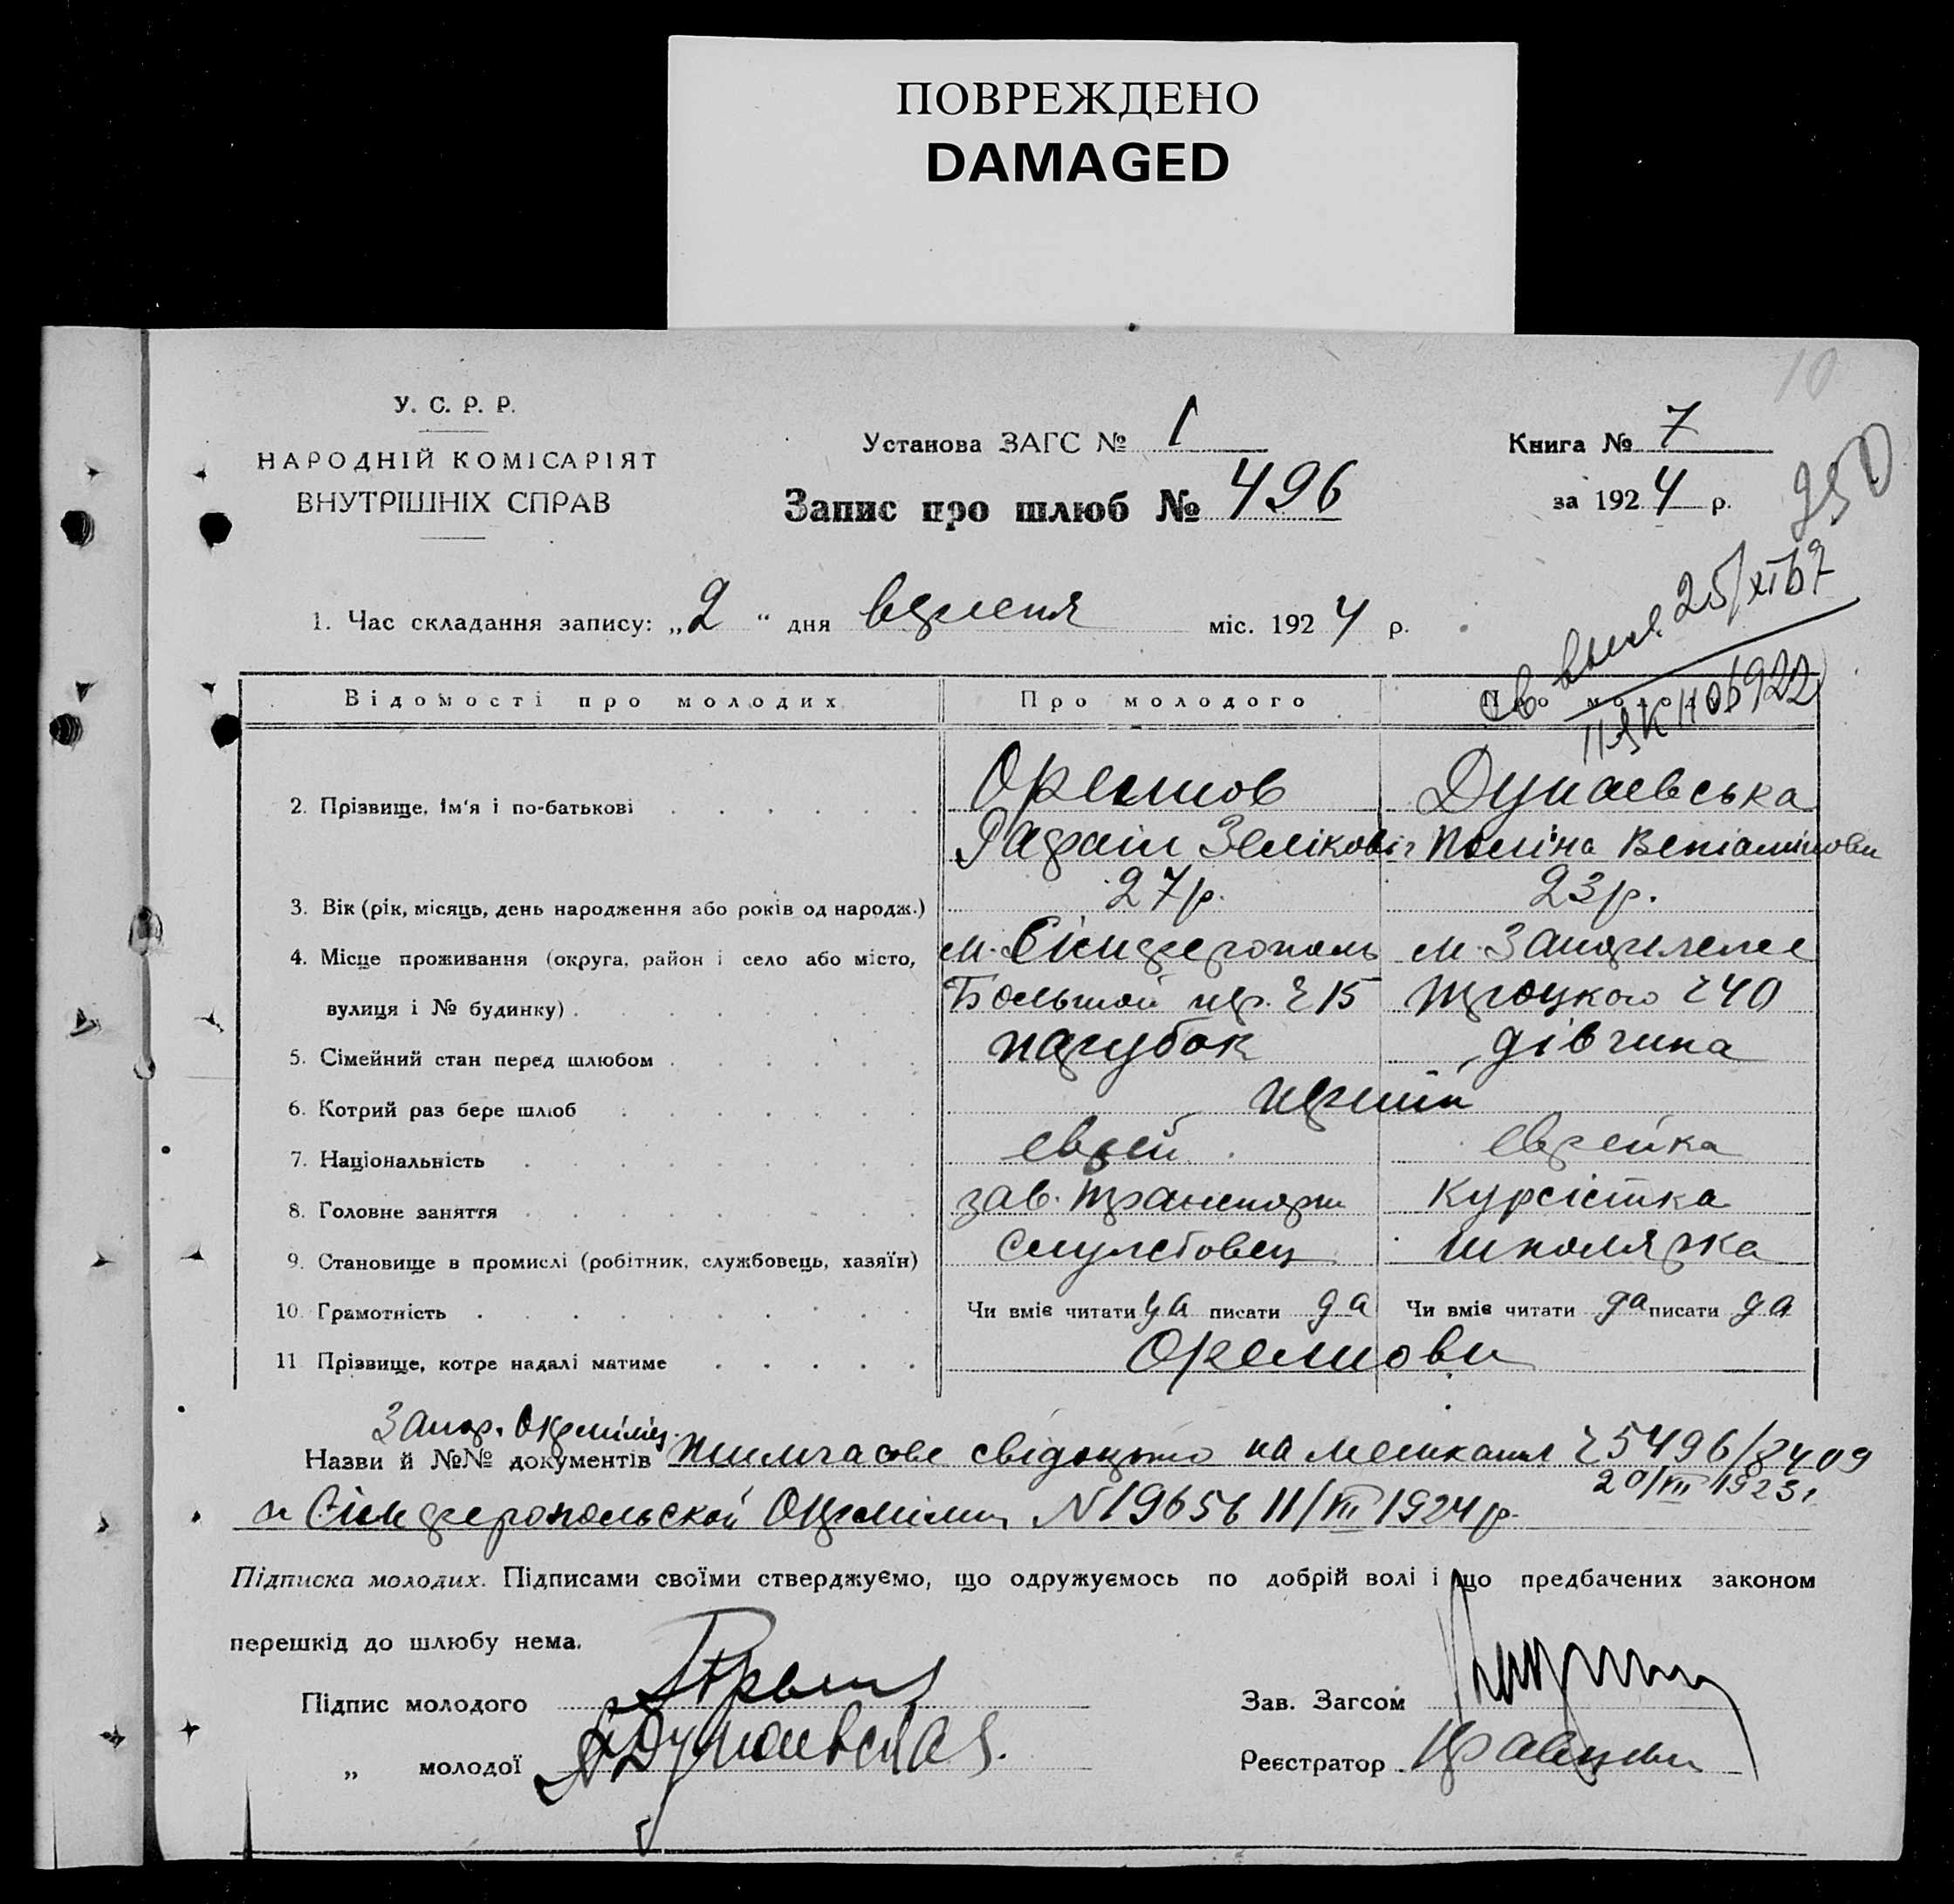 ПОВРЕЖДЕНО
DAMAGED
10
250
У. С. Р. Р.
НАРОДНІЙ КОМІСАРІЯТ
ВНУТРІШНІХ СПРАВ
Установа ЗАГС № 1
Запис про шлюб № 496
Книга № 7
за 1924 р.
25/XI 67
1. Час складання запису: „2“ дня вересня міс. 1924 р.
Відомості про молодих Про молодого Про молоду
2. Прізвище, ім'я і по-батькові Дунаевська
Рафаіл Зелікович Поліна Веніаміновн
3. Вік (рік, місяць, день народження або років од народж.) 27 р. 23 р.
4. Місце проживання (округа, район і село або місто, м. Сімферополь м. Запоріжже
вулиця і № будинку) Большой пр. ч 15 Троцкого ч 40
5. Сімейний стан перед шлюбом парубок дівчина
6. Котрий раз бере шлюб перший
7. Національність еврей еврейка
8. Головне заняття зав. транспорт курсістка
9. Становище в промислі (робітник, службовець, хазяїн) службовец школярка
10. Грамотність Чи вміє читати да писати да Чи вміє читати да писати да
11 Прізвище, котре надалі матиме
Запор. Окрміліц.
Назви й №№ документів тимчасове свідоцтво на мешканя ч 5496/8409
20/VII 1923 г
и Сімферопольской Окрміліц N 19656 11/VII 1924 р.
Підписка молодих. Підписами своїми стверджуємо, що одружуємось по добрій волі і що предбачених законом
перешкід до шлюбу нема.
Підпис молодого
Зав. Загсом
„ молодої Дунаевская.
Реєстратор